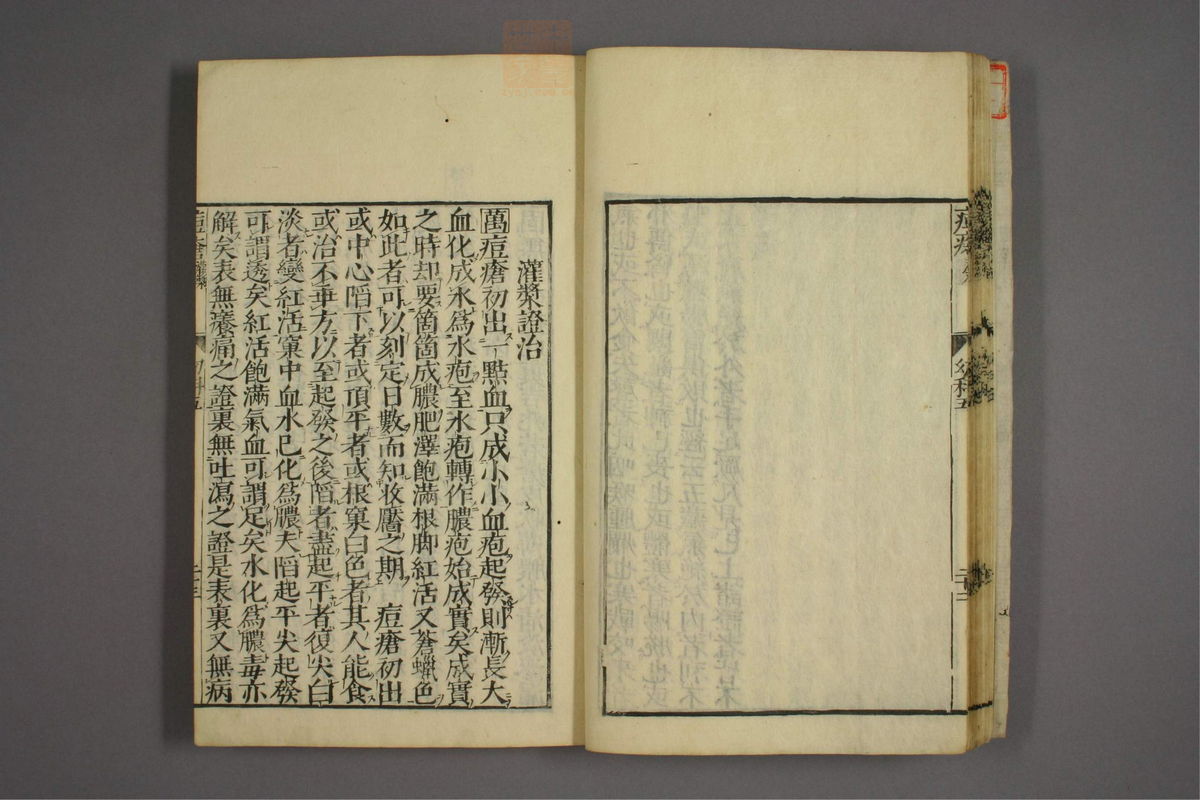 灌漿證治
萬痘瘡初出一點血只成小小血疱起發則漸長大
血化成水爲水疱至水疱轉作膿疱始成實矣成實
之時却要箇箇成膿肥澤飽滿根脚紅活又蒼蠟色
如此者可以刻定日數而知收靨之期 痘瘡初出
或中心陷下者或頂平者或根窠白色者其人能食
或治不乖方以至起發之後陷者盡起平者復尖白
淡者變紅活窠中血水已化爲膿夫陷起平尖起發
可謂透矣紅活飽滿氣血可謂足矣水化爲膿毒亦
解矣表無癢痛之證裏無吐瀉之證是表裏又無病
痘瘡
幼科五
二十三
幼科五